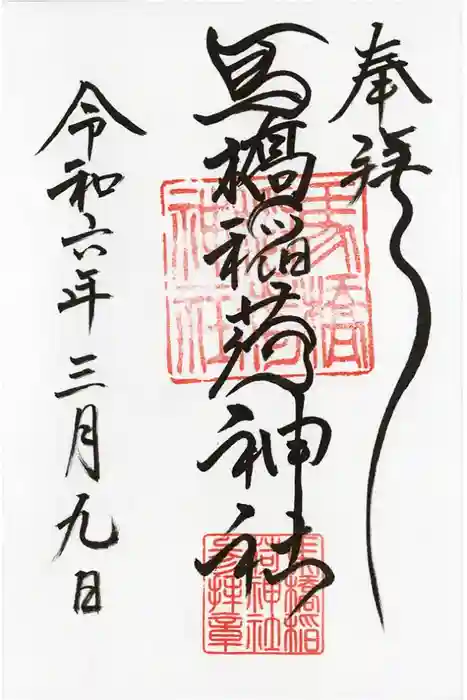 奉拝
馬橋稲荷神社
令和六年三月九日
馬橋
稲荷
神社
馬橋稲
荷神社
参拝章